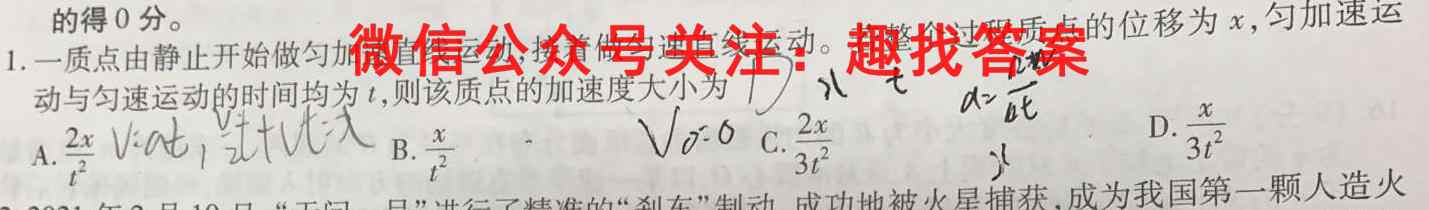 的得0分。
微信公众号关注:趣找答案
1.一质点由静止开始做匀加速直线运动,接着做匀速直线运动。若整个过程质点的位移为x,匀加速运
动与匀速运动的时间均为t,则该质点的加速度大小为
x t
V=at, v/2 t+vt=x
V₀=0
A. 2x/t² B. x/t² C. 2x/3t² D. x/3t²
x
“天问一号”进行了精准的“刹车”制动,成功地被火星捕获,成为我国第一颗人造火